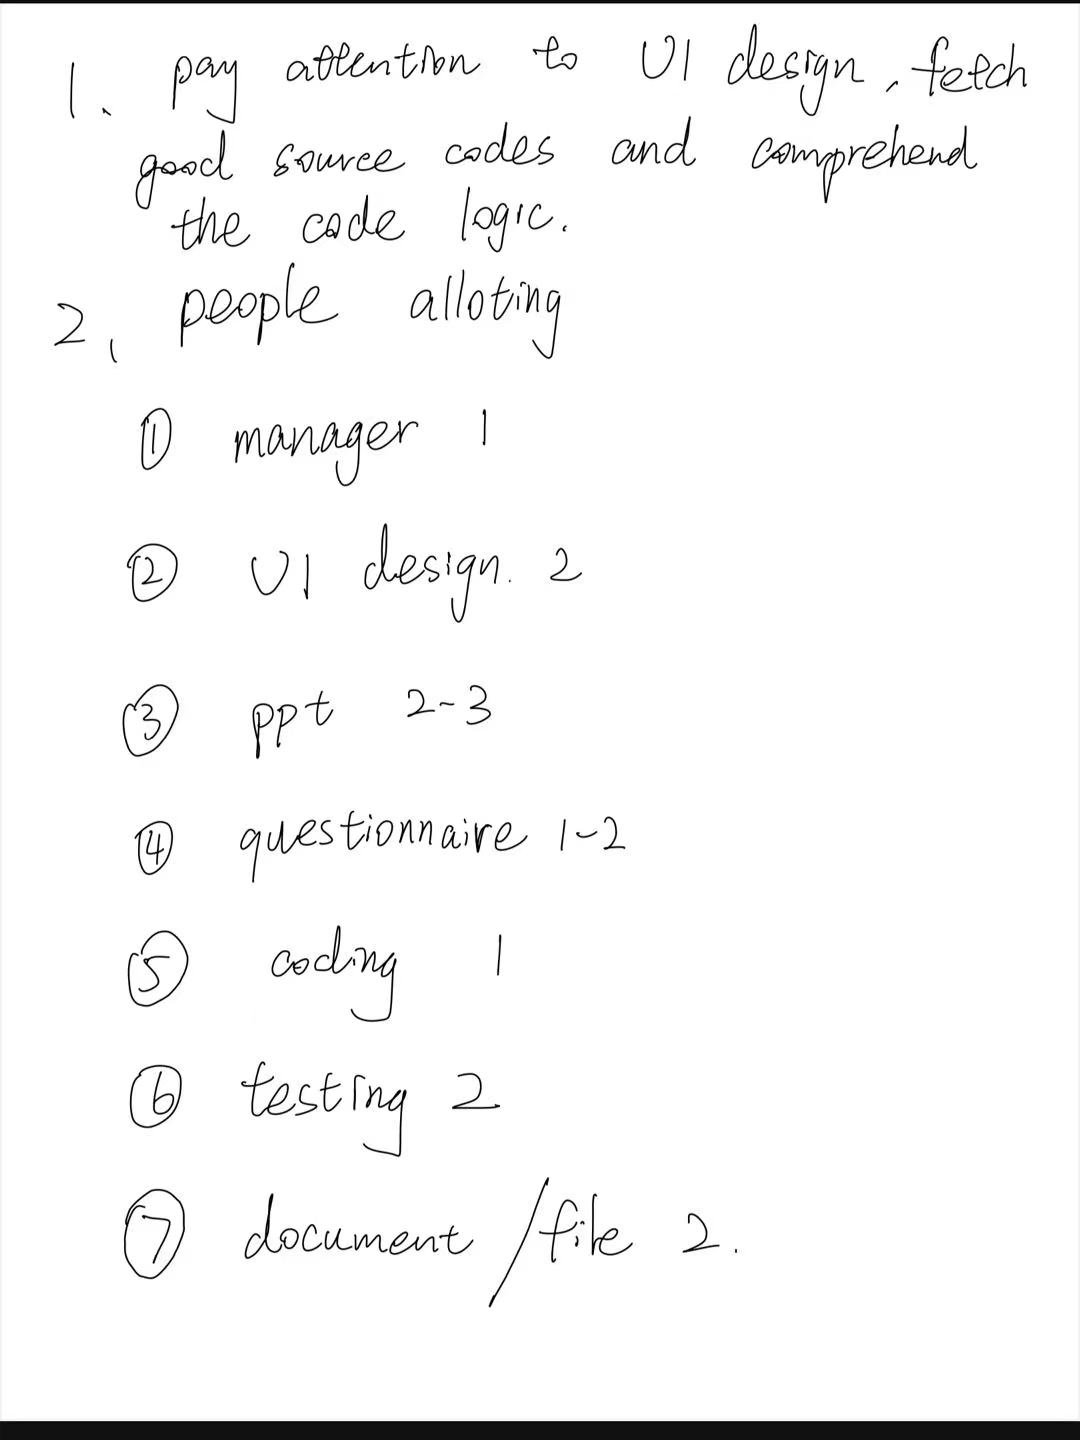 1. pay attention to UI design, fetch
good source codes and comprehend
the code logic.
2, people alloting
① manager 1
② UI design. 2
③ ppt 2-3
④ questionnaire 1-2
⑤ coding 1
⑥ testing 2
⑦ document/file 2.